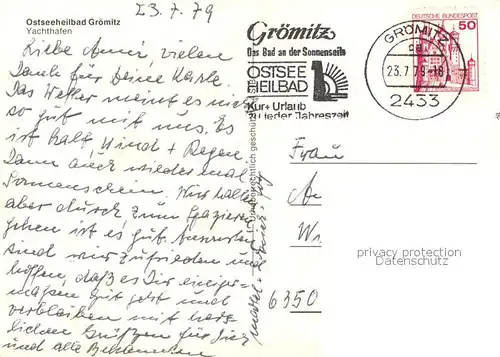 23.7.79
Ostseeheilbad Grömitz
Yachthafen
Liebe Anni, vielen
Dank für Deine Karte.
Das Wetter meint es nicht
so gut mit uns. Es
ist kalt Wind + Regen
Dann auch wieder mal
Sonnenschein. Wir halten
aber durch zum Spazieren
gehen ist es gut. Ansonsten
sind wir zufrieden und
hoffen, daß es Dir einiger-
maßen gut geht und
verbleiben mit herz-
lichen Grüßen für Dich
und alle Bekannten
Grömitz
Das Bad an der Sonnenseite
OSTSEE
HEILBAD
Kur + Urlaub
zu jeder Jahreszeit
GRÖMITZ
23.7.79-18
2433
DEUTSCHE BUNDESPOST
50
Urheberrechtlich geschützt
Frau
A
W
6350
privacy protection
Datenschutz